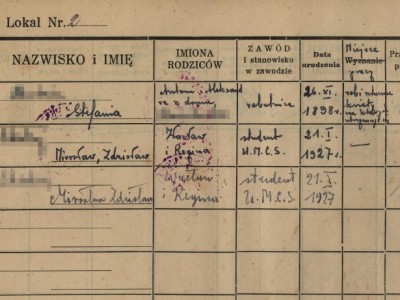 Lokal Nr. 2
NAZWISKO i IMIĘ
IMIONA
RODZICÓW
ZAWÓD
i stanowisko
w zawodzie
Data
urodzenia
Miejsce
Wyznanie
pracy
Stefania
Antoni i Aleksand
ra z domu
robotnica
26.VI.
1898 r.
Mirosław, Zdzisław
Wacław
i Regina
student
U.M.C.S.
21.I.
1927 r.
—
Mirosław Zdzisław
Wacław
i Regina
student
U.M.C.S.
21.I.
1927